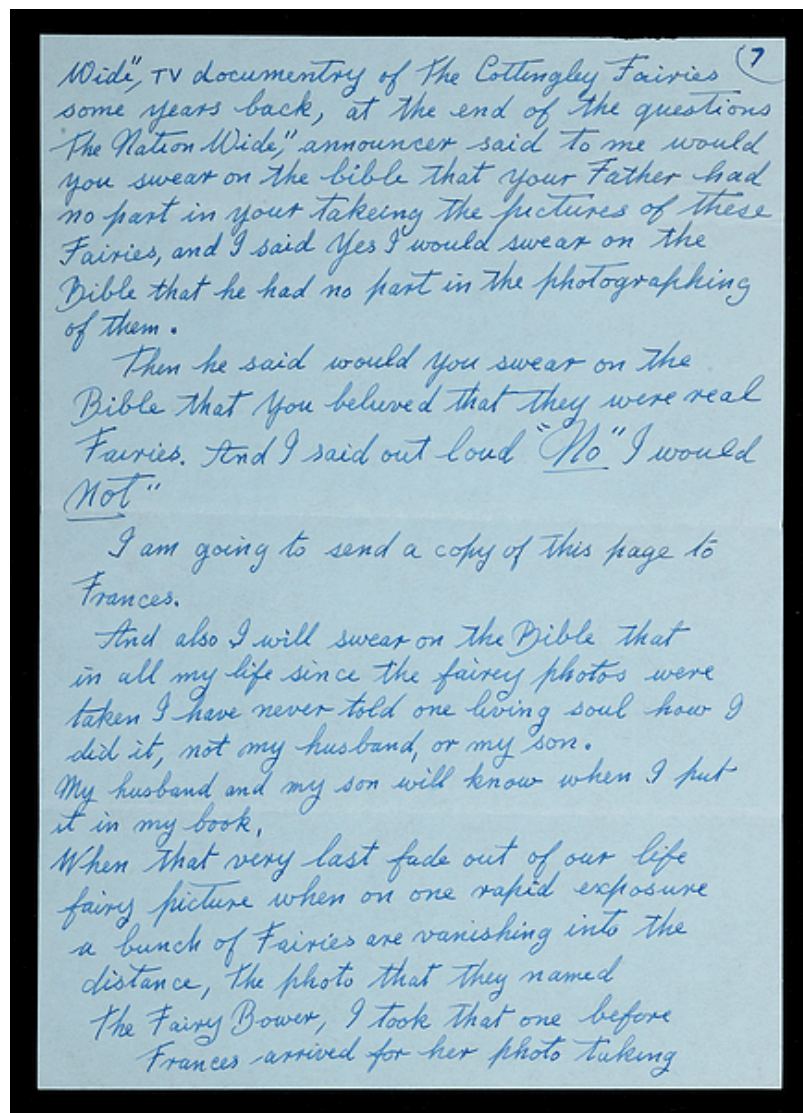 7
Wide", TV documentry of The Cottingley Fairies
some years back, at the end of the questions
The Nation Wide," announcer said to me would
you swear on the bible that your Father had
no part in your takeing the pictures of these
Fairies, and I said Yes I would swear on the
Bible that he had no part in the photographing
of them.
Then he said would you swear on the
Bible that you believed that they were real
Fairies. And I said out loud "No" I would
Not"
I am going to send a copy of this page to
Frances.
And also I will swear on the Bible that
in all my life since the fairey photos were
taken I have never told one living soul how I
did it, not my husband, or my son.
My husband and my son will know when I put
it in my book,
When that very last fade out of our life
fairy picture when on one rapid exposure
a bunch of Fairies are vanishing into the
distance, The photo that they named
The Fairy Bower, I took that one before
Frances arrived for her photo taking